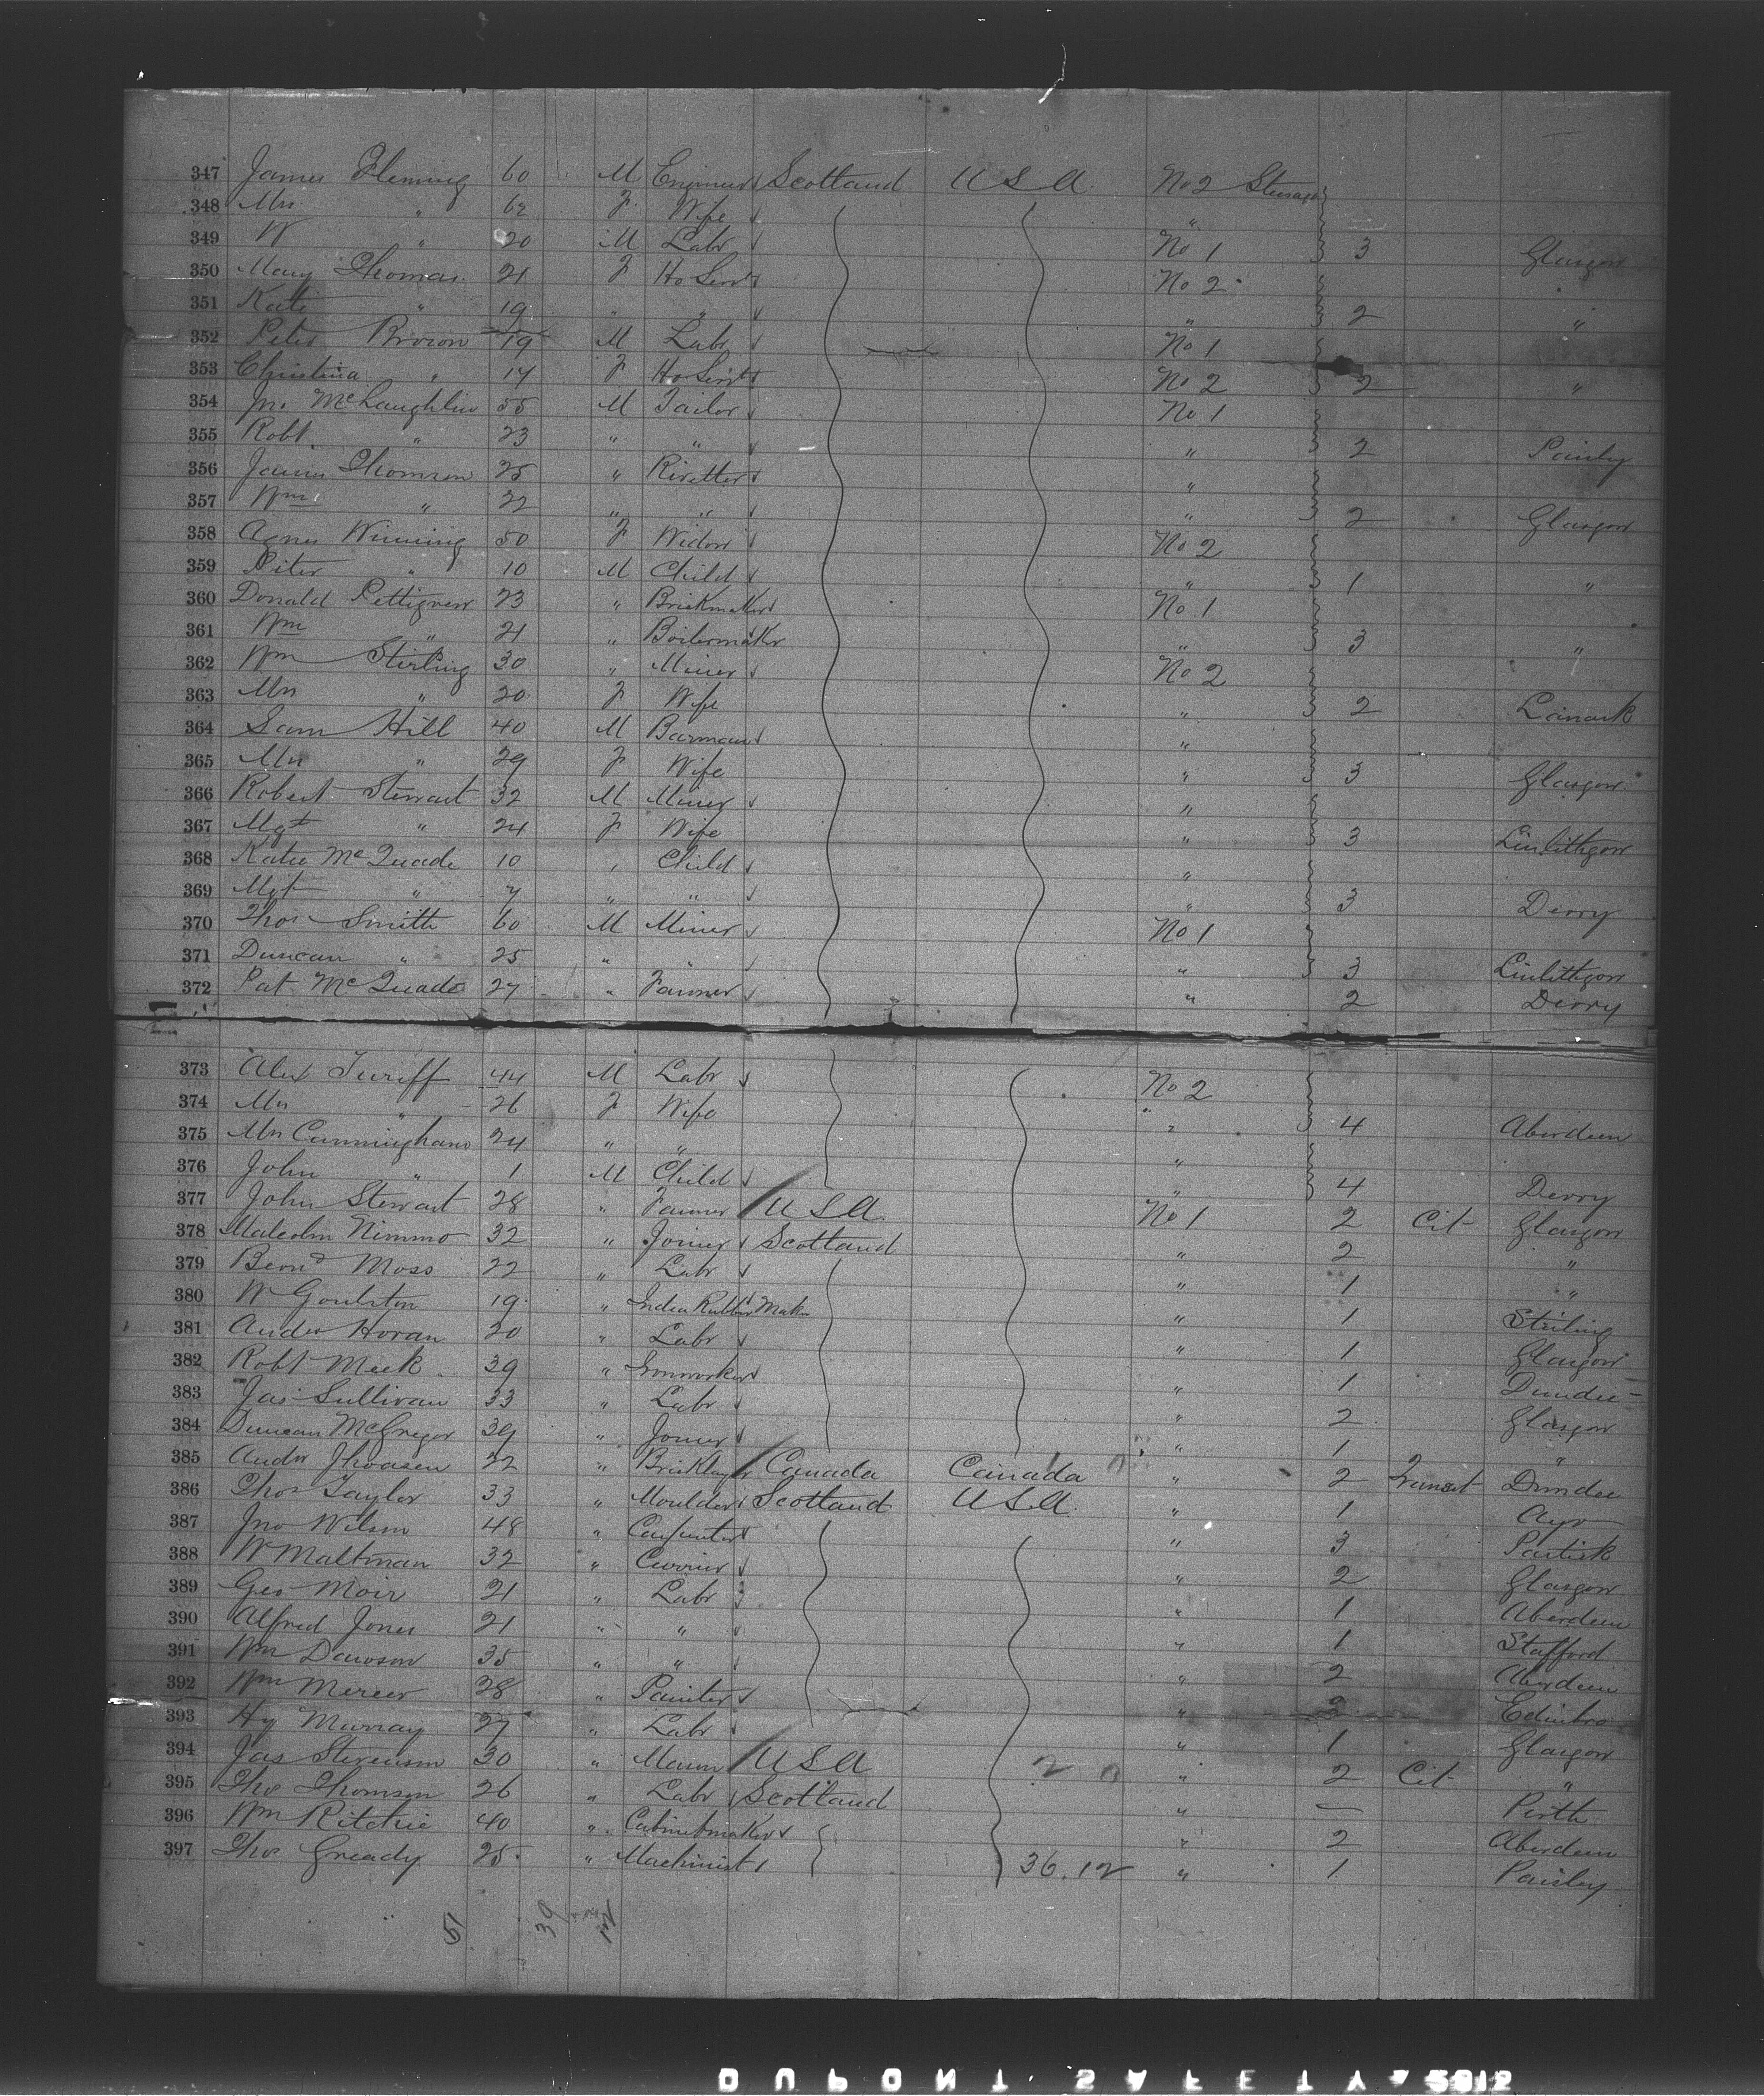 347 James Fleming 60 M Engineer Scotland U S A No 2 Steerage
348 Mrs " 62 F Wife "
349 W " 20 M Labr No 1 3 Glasgow
350 Mary Thomas 21 F Ho Servt No 2
351 Kate " 19 " " " 2 "
352 Peter Brown 19 M Labr No 1
353 Christina " 17 F Ho Servt No 2 2 "
354 Jno McLaughlin 55 M Tailor No 1
355 Robt " 23 " " " 2 Paisley
356 James Thomson 25 " Rivetter "
357 Wm " 22 " " " 2 Glasgow
358 Agnes Winning 50 F Widow No 2
359 Peter " 10 M Child " 1 "
360 Donald Pettigrew 23 " Brickmaker No 1
361 Wm " 21 " Boilermaker " 3 "
362 Wm Stirling 30 " Miner No 2
363 Mrs " 20 F Wife " 2 Lanark
364 Sam Hill 40 M Barman "
365 Mrs " 29 F Wife " 3 Glasgow
366 Robert Stewart 32 M Miner "
367 Mgt " 24 F Wife " 3 Linlithgow
368 Katie McQuade 10 " Child "
369 Mgt " 7 " " " 3 Derry
370 Thos Smith 60 M Miner No 1
371 Duncan " 25 " " " 3 Linlithgow
372 Pat McQuade 27 " Farmer " 2 Derry
373 Alex Turiff 44 M Labr No 2
374 Mrs " 26 F Wife " 4 Aberdeen
375 Mrs Cunningham 24 " " "
376 John " 1 M Child " 4 Derry
377 John Stewart 28 " Farmer U S A No 1 2 Cit Glasgow
378 Malcolm Nimmo 32 " Joiner Scotland " 2 "
379 Bernd Moss 22 " Labr " 1 "
380 W Goulston 19 " India Rubber Maker " 1 Stirling
381 Andw Horan 20 " Labr " 1 Glasgow
382 Robt Meek 39 " Ironworker " 1 Dundee
383 Jas Sullivan 33 " Labr " 2 Glasgow
384 Duncan McGregor 39 " Joiner " 1 "
385 Andw Thoasen 22 " Bricklayer Canada Canada " 2 Transit Dundee
386 Thos Taylor 33 " Moulder Scotland U S A " 1 Ayr
387 Jno Wilson 48 " Carpenter " 3 Partick
388 W Maltman 32 " Currier " 2 Glasgow
389 Geo Moir 21 " Labr " 1 Aberdeen
390 Alfred Jones 21 " " " 1 Stafford
391 Wm Dawson 35 " " " 2 Aberdeen
392 Wm Mercer 28 " Painter " 2 Edinbro
393 Hy Murray 27 " Labr " 1 Glasgow
394 Jas Stevenson 30 " Mason U S A " 2 Cit "
395 Thos Thomson 26 " Labr Scotland " — Perth
396 Wm Ritchie 40 " Cabinetmaker " 2 Aberdeen
397 Thos Gready 25 " Machinist 36.12 " 1 Paisley
51 39 12
DUPONT SAFETY 5812